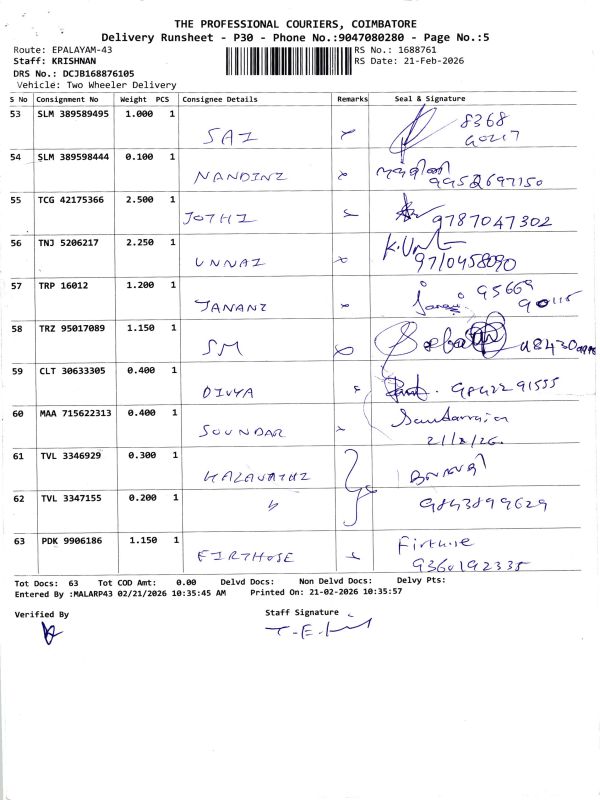 THE PROFESSIONAL COURIERS, COIMBATORE
Delivery Runsheet - P30 - Phone No.:9047080280 - Page No.:5
Route: EPALAYAM-43 RS No.: 1688761
Staff: KRISHNAN RS Date: 21-Feb-2026
DRS No.: DCJB168876105
Vehicle: Two Wheeler Delivery
S No Consignment No Weight PCS Consignee Details Remarks Seal & Signature
53 SLM 389589495 1.000 1 SAI 8368
90217
54 SLM 389598444 0.100 1 NANDINI
9952697150
55 TCG 42175366 2.500 1 JOTHI 9787047302
56 TNJ 5206217 2.250 1 UNNAI
9710458090
57 TRP 16012 1.200 1 JANANI 95669
90115
58 TRZ 95017089 1.150 1 SM
59 CLT 30633305 0.400 1 DIVYA 9842291555
60 MAA 715622313 0.400 1 SOUNDAR
21/2/26.
61 TVL 3346929 0.300 1 KALAVATHI
62 TVL 3347155 0.200 1 9843899629
63 PDK 9906186 1.150 1 FIRTHOSE
9360192335
Tot Docs: 63 Tot COD Amt: 0.00 Delvd Docs: Non Delvd Docs: Delvy Pts:
Entered By :MALARP43 02/21/2026 10:35:45 AM Printed On: 21-02-2026 10:35:57
Verified By Staff Signature